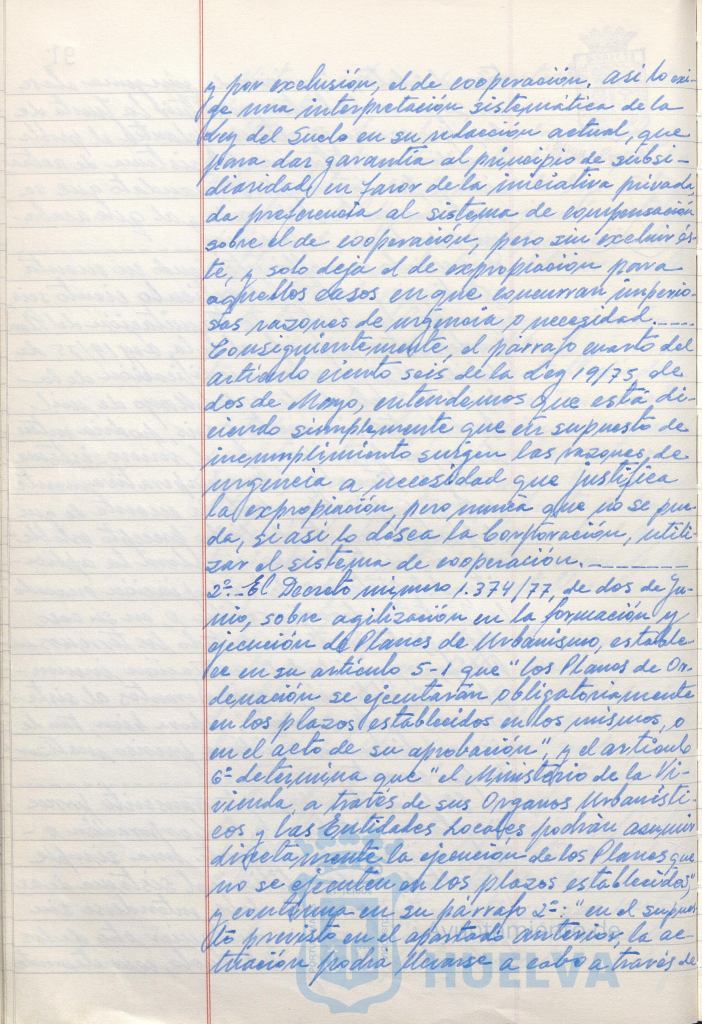 y por exclusión, el de cooperación. así lo exi-
ge una interpretación sistemática de la
Ley del Suelo en su redacción actual, que
para dar garantía al principio de subsi-
diaridad en favor de la iniciativa privada
da preferencia al sistema de compensación
sobre el de cooperación, pero sin excluir és-
te, y solo deja el de expropiación para
aquellos casos en que concurran imperio-
sas razones de urgencia o necesidad.----
Consiguientemente, el párrafo cuarto del
artículo ciento seis de la Ley 19/75, de
dos de Mayo, entendemos que está di-
ciendo simplemente que en supuesto de
incumplimiento surgen las razones de
urgencia a necesidad que justifica
la expropiación, pero nunca que no se pue-
da, si así lo desea la Corporación, utili-
zar el sistema de cooperación.---------
2º.- El Decreto número 1.374/77, de dos de Ju-
nio, sobre agilización en la formación y
ejecución de Planes de Urbanismo, estable-
ce en su artículo 5-1 que "los Planos de Or-
denación se ejecutarán obligatoriamente
en los plazos establecidos en los mismos, o
en el acto de su aprobación", y el artículo
6º determina que "el Ministerio de la Vi-
vienda, a través de sus Organos Urbanísti-
cos y las Entidades Locales podrán asumir
directamente la ejecución de los Planes que
no se ejecuten en los plazos establecidos,"
y continua en su párrafo 2º: "en el supues-
to previsto en el apartado anterior, la ac-
tuación podrá llevarse a cabo a través de
Ayuntamiento de
HUELVA